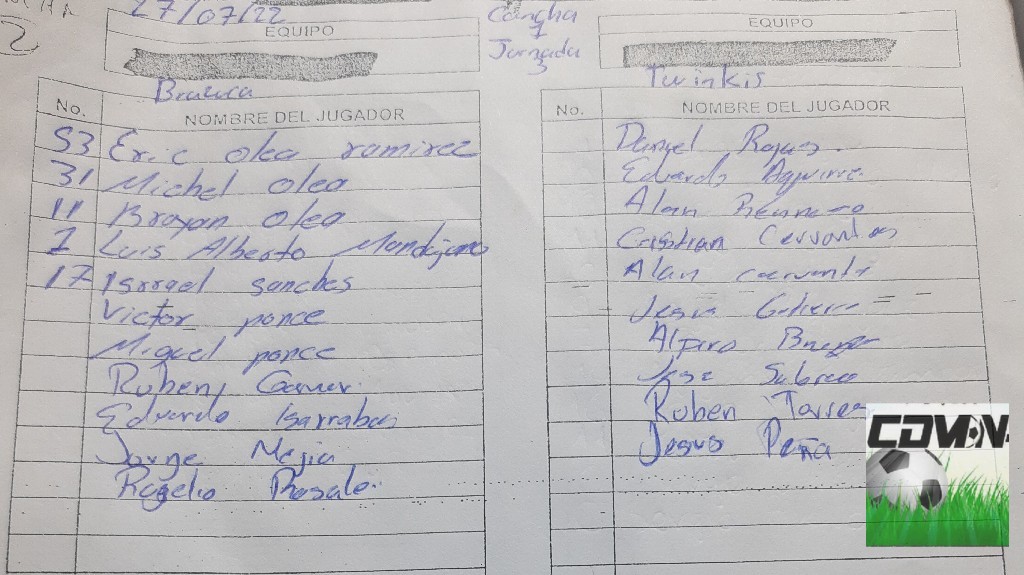 27/07/22
Cancha
1
Jornada
3
EQUIPO
Brazuca
No. NOMBRE DEL JUGADOR
53 Eric olea ramirez
31 Michel olea
11 Brayan olea
1 Luis Alberto
17 Israel sanches
Victor ponce
Miguel ponce
Ruben
Eduardo
Jorge Mejia
Rogelio
EQUIPO
Twinkis
No. NOMBRE DEL JUGADOR
Daniel Rojas.
Eduardo Aguirre
Alan
Cristian Cervantes
Alan
Jesus
Jose
Ruben Torres
Jesus Peña